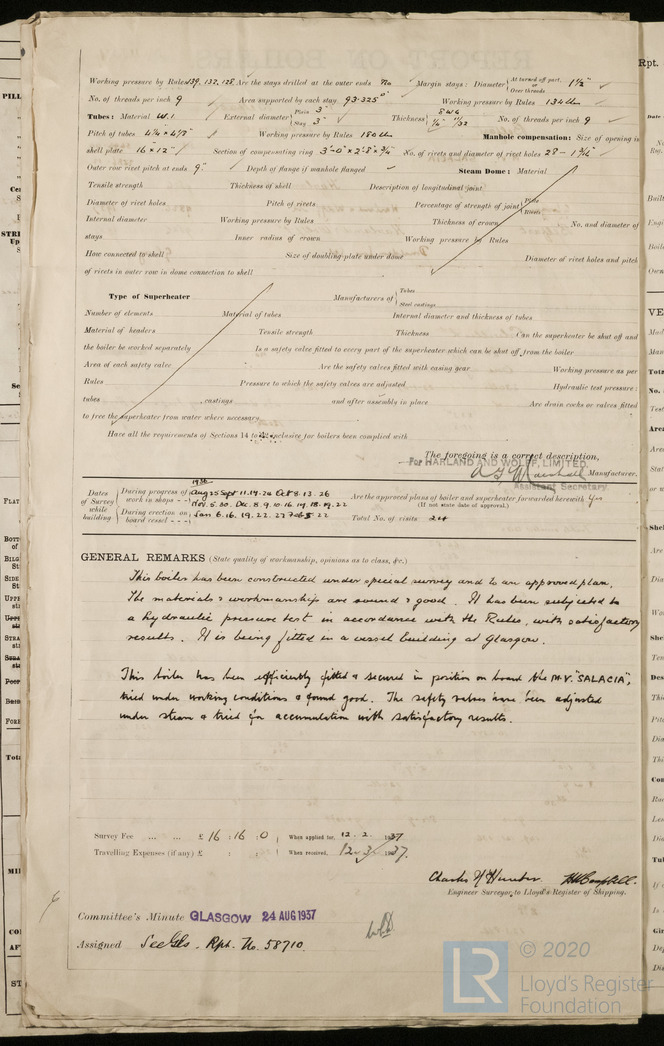 Working pressure by Rules 139. 132. 128. Are the stays drilled at the outer ends No Margin stays: Diameter { At turned off part, or Over threads 1½"
No. of threads per inch 9 Area supported by each stay 93.325" Working pressure by Rules 134 lb
Tubes: Material W.I. External diameter { Plain 3" Stay 3" Thickness { 8 WG ¼" 11/32 No. of threads per inch 9
Pitch of tubes 4¼ x 4⅛" Working pressure by Rules 180 lb Manhole compensation: Size of opening in
shell plate 16 x 12" Section of compensating ring 3'-0" x 2'-8" x ¾" No. of rivets and diameter of rivet holes 28 - 1 3/16"
Outer row rivet pitch at ends 9" Depth of flange if manhole flanged Steam Dome: Material
Tensile strength Thickness of shell Description of longitudinal joint
Diameter of rivet holes Pitch of rivets Percentage of strength of joint { Plate Rivets
Internal diameter Working pressure by Rules Thickness of crown No. and diameter of
stays Inner radius of crown Working pressure by Rules
How connected to shell Size of doubling plate under dome Diameter of rivet holes and pitch
of rivets in outer row in dome connection to shell
Type of Superheater Manufacturers of { Tubes Steel castings
Number of elements Material of tubes Internal diameter and thickness of tubes
Material of headers Tensile strength Thickness Can the superheater be shut off and
the boiler be worked separately Is a safety valve fitted to every part of the superheater which can be shut off from the boiler
Area of each safety valve Are the safety valves fitted with easing gear Working pressure as per
Rules Pressure to which the safety valves are adjusted Hydraulic test pressure:
tubes , castings and after assembly in place Are drain cocks or valves fitted
to free the superheater from water where necessary
Have all the requirements of Sections 14 to inclusive for boilers been complied with
The foregoing is a correct description,
For HARLAND AND WOLFF, LIMITED.
Manufacturer.
Assistant Secretary
Dates of Survey while building
1936
During progress of work in shops - - Aug 25 Sept 11.14.24 Oct 8.13.26 Nov. 5.30. Dec. 8.9.10.16.17.18.19.22
During erection on board vessel - - - Jan 6.16.19.22.27 Feb 5.22
Are the approved plans of boiler and superheater forwarded herewith Yes
(If not state date of approval.)
Total No. of visits 24
GENERAL REMARKS (State quality of workmanship, opinions as to class, &c.)
This boiler has been constructed under special survey and to an approved plan.
The materials & workmanship are sound & good. It has been subjected to
a hydraulic pressure test in accordance with the Rules, with satisfactory
results. It is being fitted in a vessel building at Glasgow.
This boiler has been efficiently fitted & secured in position on board the M.V. "SALACIA",
tried under working conditions & found good. The safety valves have been adjusted
under steam & tried for accumulation with satisfactory results.
Survey Fee ... ... £ 16 : 16 : 0 When applied for, 12.2.1937
Travelling Expenses (if any) £ : : When received, 12.3.1937.
Charles N Hunter.
Engineer Surveyor to Lloyd's Register of Shipping.
Committee's Minute GLASGOW 24 AUG 1937
Assigned See Gls. Rpt. No. 58710.
© 2020
LR Lloyd's Register
Foundation